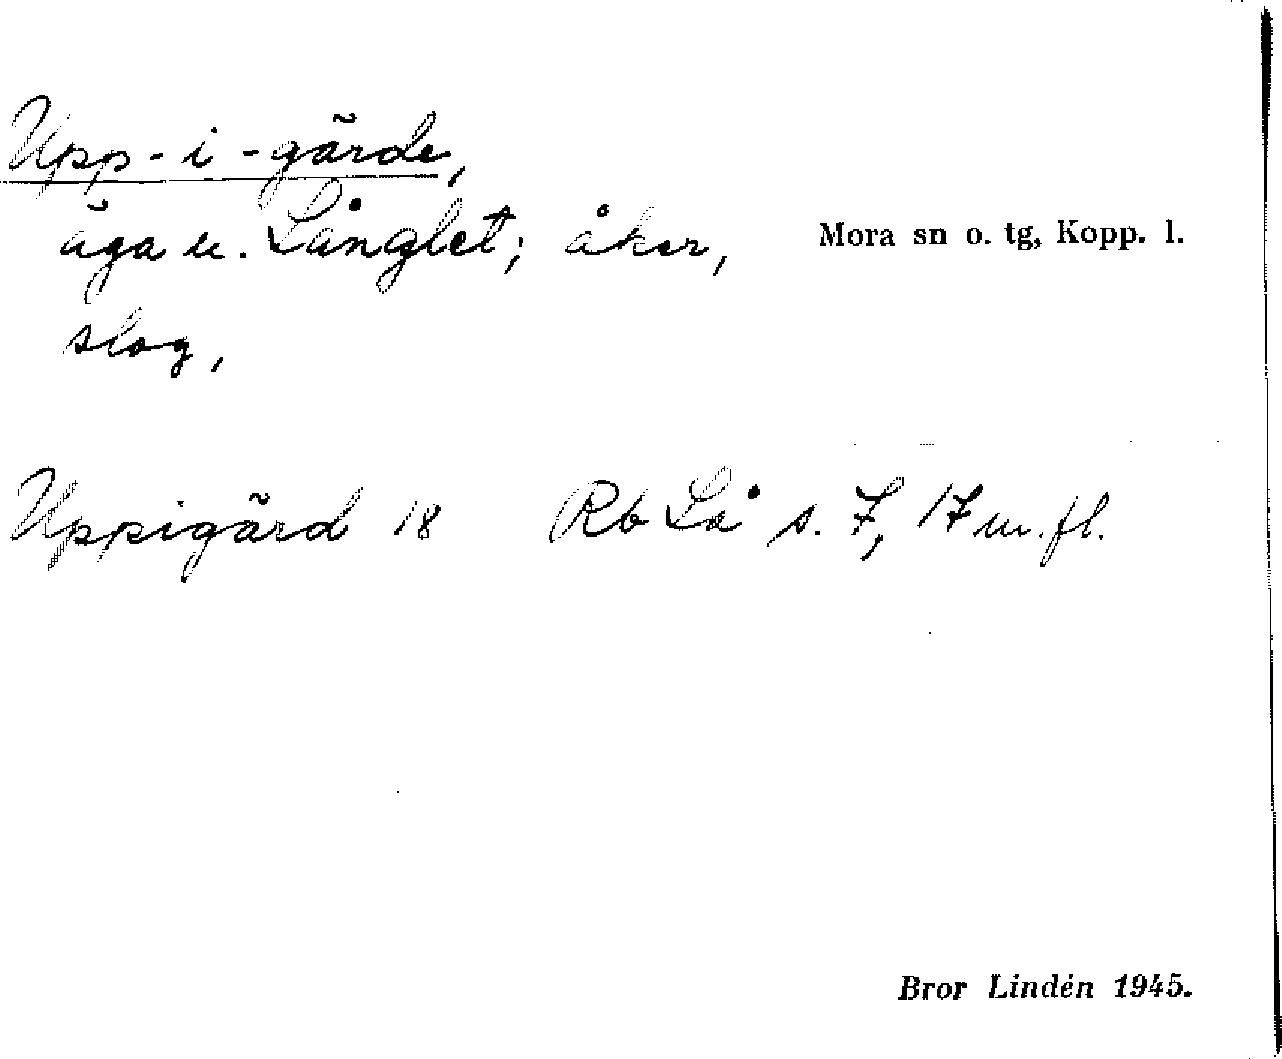 Upp-i-gärde,
äga u. Långlet; åker,
Mora sn o. tg, Kopp. l.
slog,
Uppigärd 18 Rb Lå s. 7, 17 m. fl.
Bror Lindén 1945.